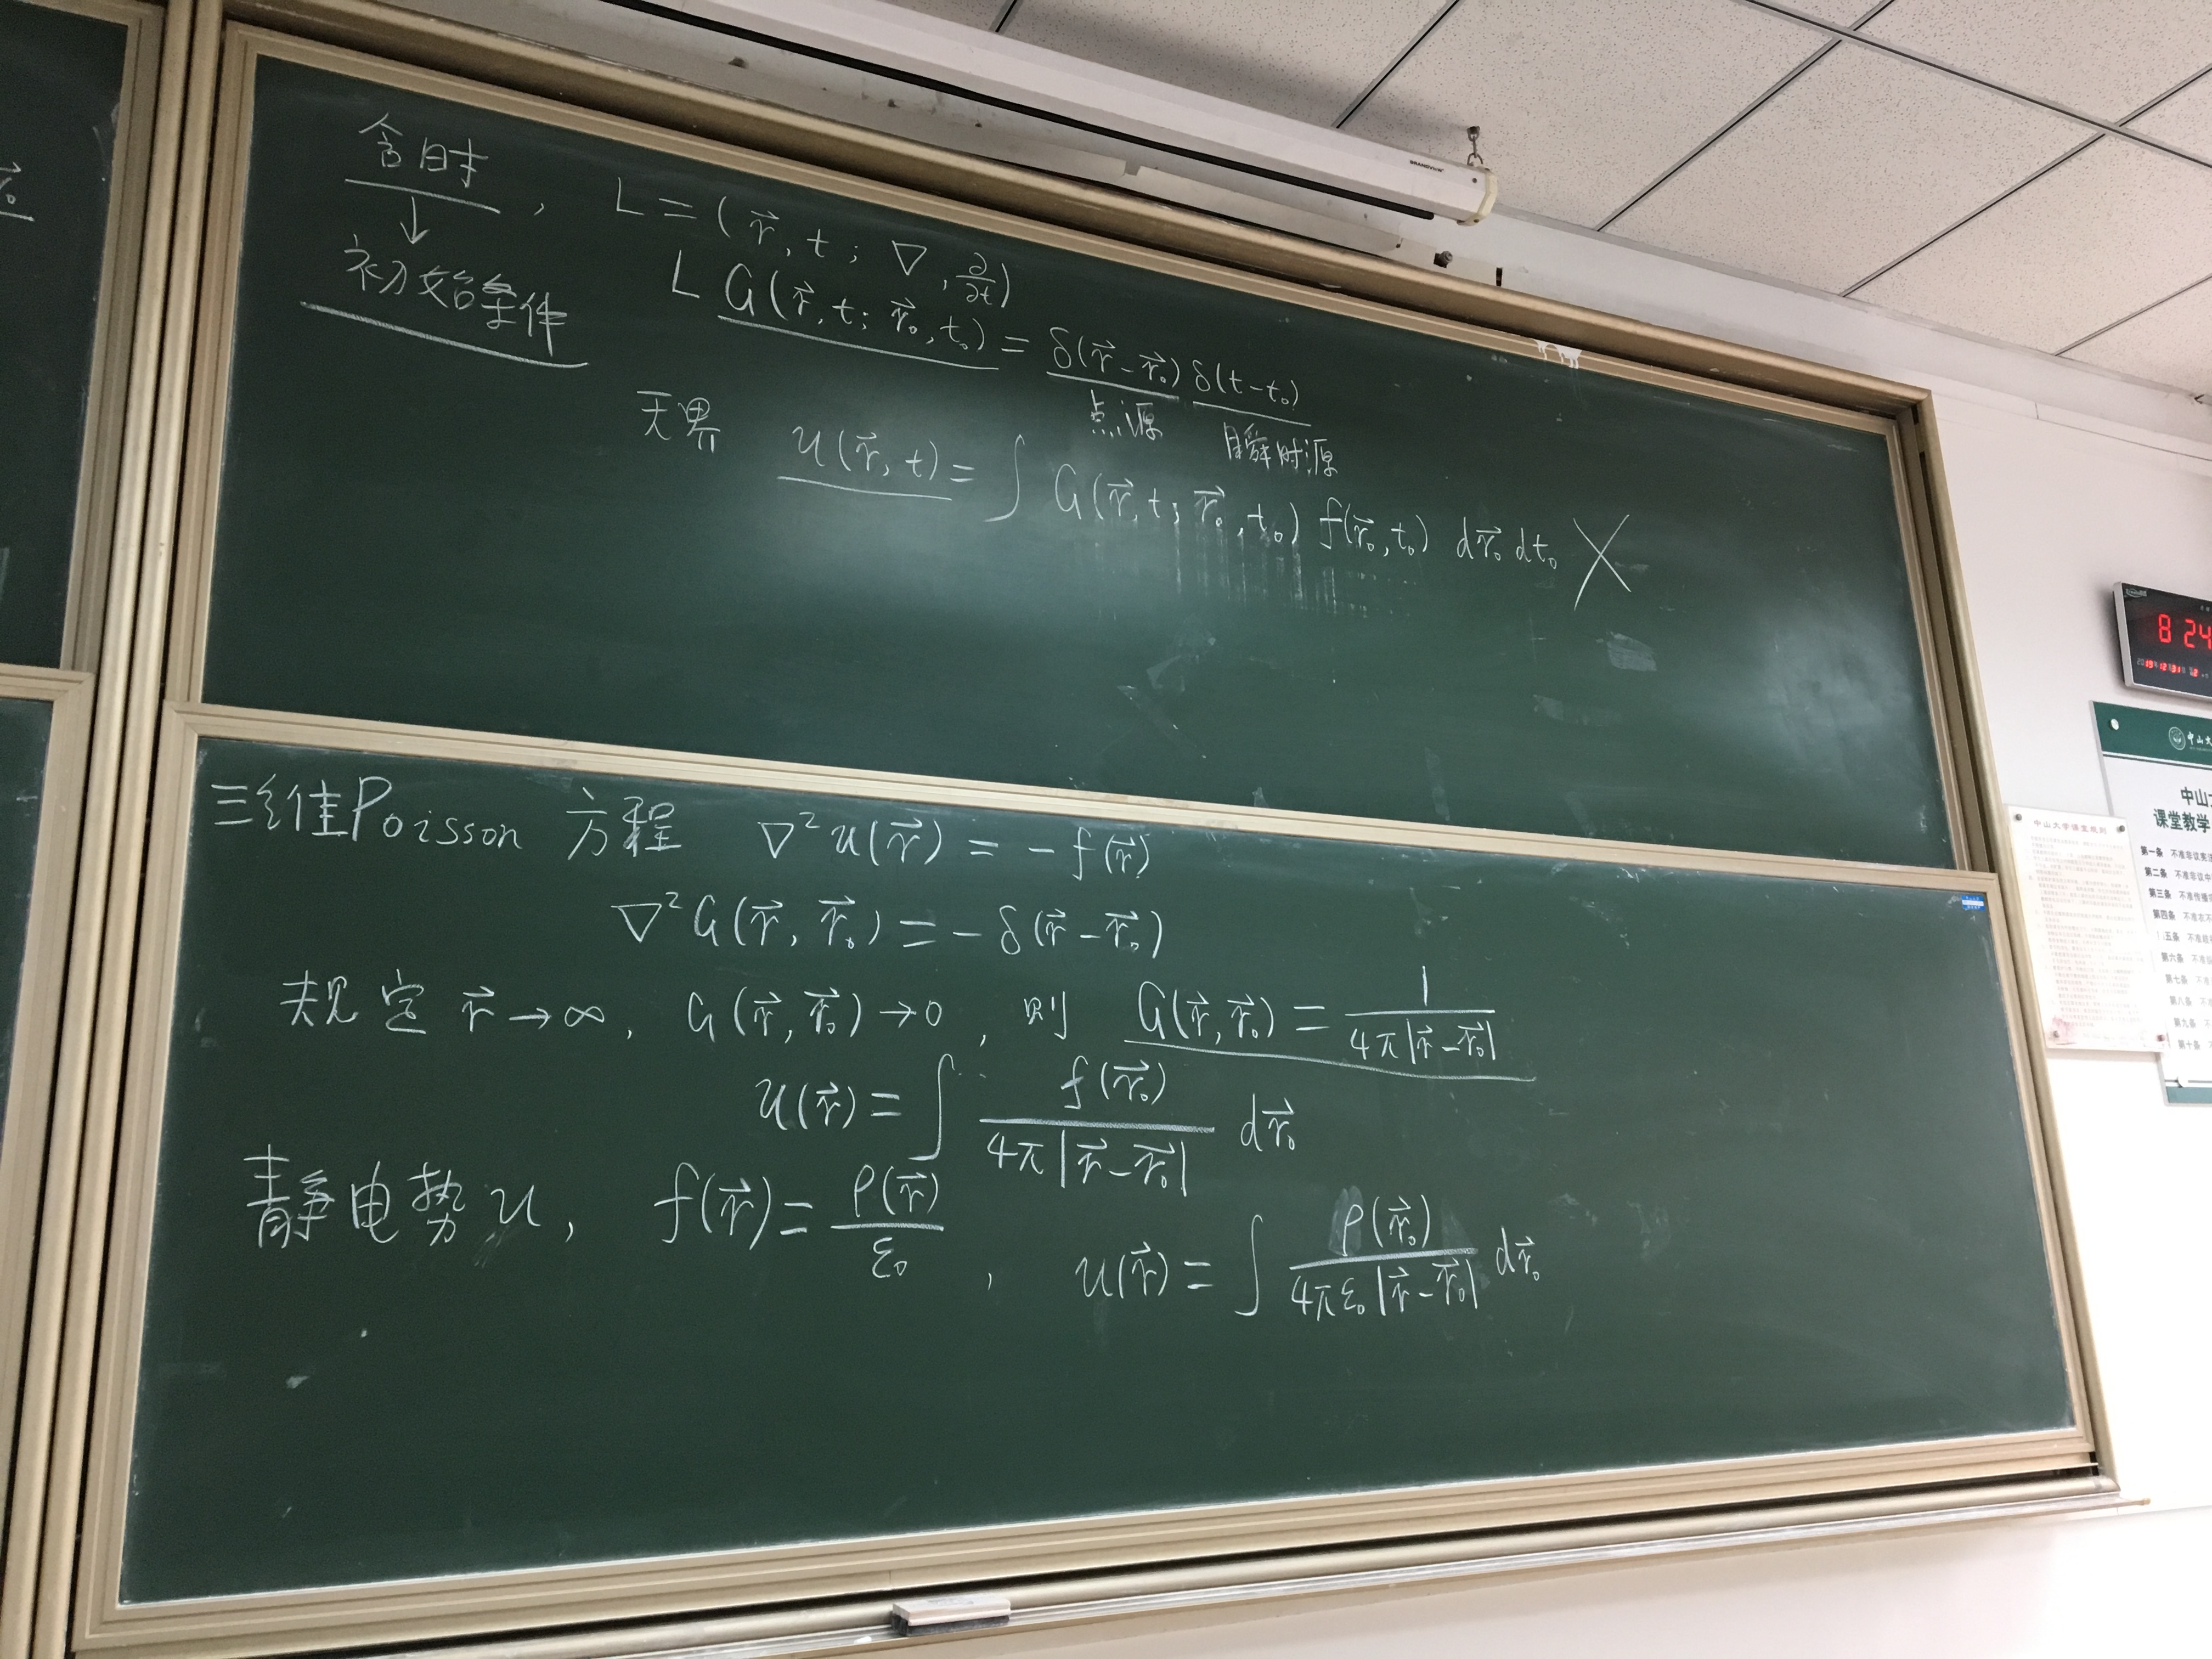 含时, L = (r⃗, t; ∇, ∂/∂t)
↓
初始条件 L G(r⃗, t; r⃗₀, t₀) = δ(r⃗ - r⃗₀) δ(t - t₀)
点源 瞬时源
无界 u(r⃗, t) = ∫ G(r⃗, t; r⃗₀, t₀) f(r⃗₀, t₀) dr⃗₀ dt₀ ×
三维Poisson 方程 ∇²u(r⃗) = -f(r⃗)
∇²G(r⃗, r⃗₀) = -δ(r⃗ - r⃗₀)
规定 r⃗ → ∞, G(r⃗, r⃗₀) → 0, 则 G(r⃗, r⃗₀) = 1/(4π|r⃗ - r⃗₀|)
u(r⃗) = ∫ f(r⃗₀)/(4π|r⃗ - r⃗₀|) dr⃗₀
静电势 u, f(r⃗) = ρ(r⃗)/ε₀, u(r⃗) = ∫ ρ(r⃗₀)/(4πε₀|r⃗ - r⃗₀|) dr⃗₀
8 24
中山大学课堂规则
课堂教学
第一条 不准非议宪
第二条 不准非议中
第三条 不准传播
第四条 不准在不
第六条
第七条
第八条
第九条
第十条